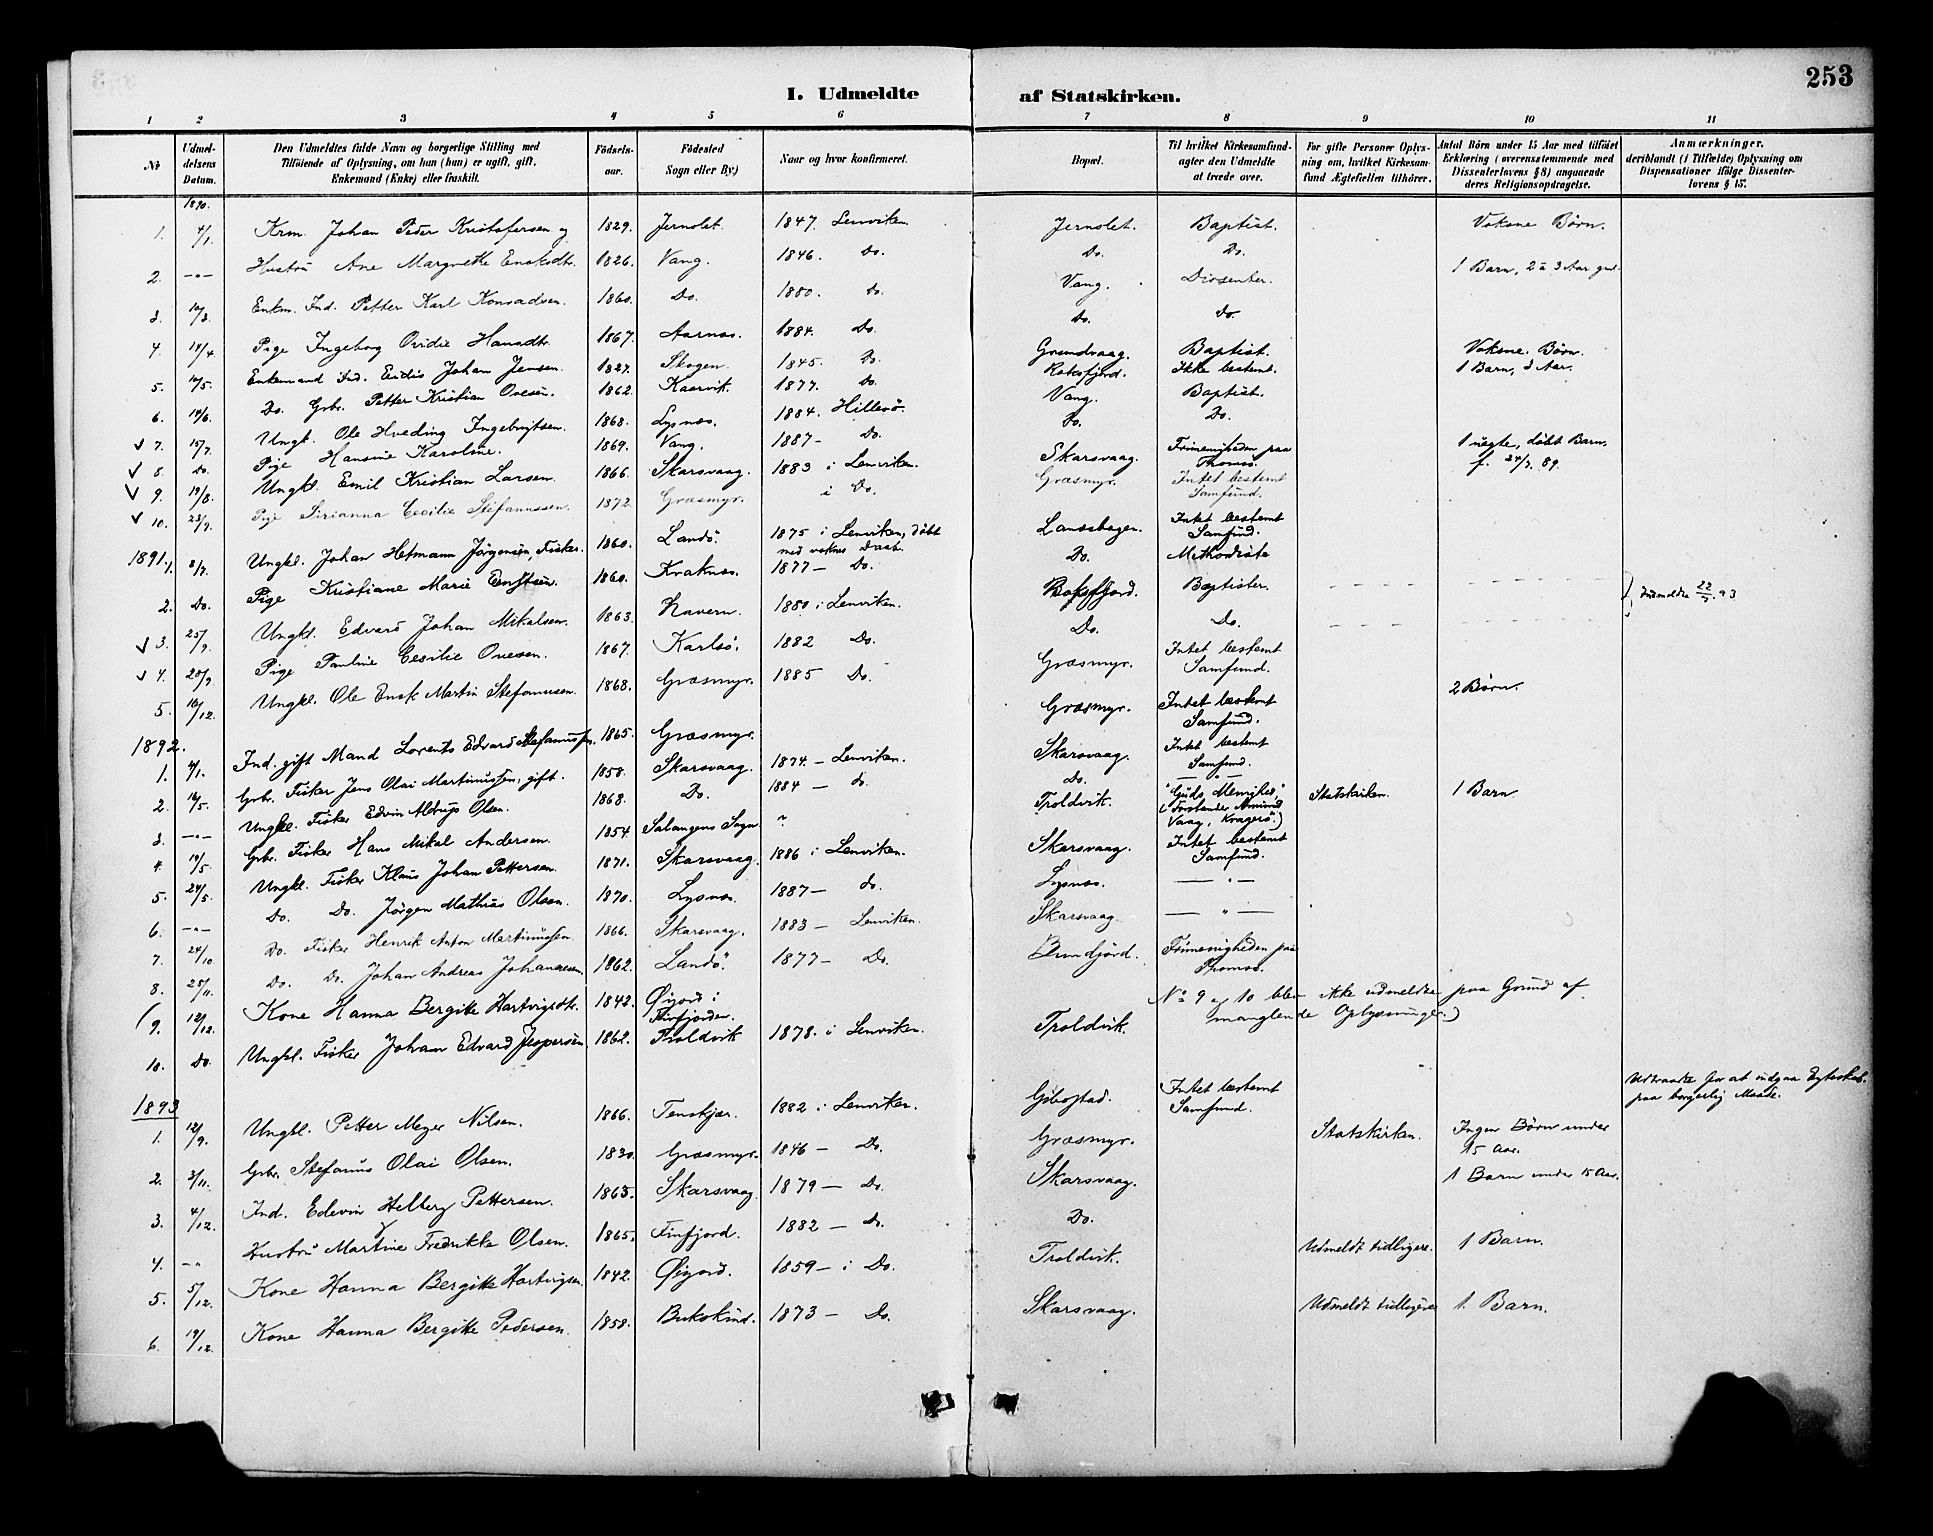 253
I. Udmeldte af Statskirken.
1 2 3 4 5 6 7 8 9 10 11
No
Udmel-
delsens
Datum.
Den Udmeldtes fulde Navn og borgerlige Stilling med
Tilföiende af Oplysning, om han (hun) er ugift, gift,
Enkemand (Enke) eller fraskilt.
Födsels-
aar.
Födested
Sogn eller By)
Naar og hvor konfirmeret.
Bopæl.
Til hvilket Kirkesamfund-
agter den Udmeldte
at træde over.
For gifte Personer Oplys-
ning om, hvilket Kirkesam-
fund Ægtefællen tilhörer.
Antal Börn under 15 Aar med tilföiet
Erklæring (overensstemmende med
Dissenterlovens § 8) angaaende
deres Religionsopdragelse.
Anmærkninger,
deriblandt (i Tilfælde) Oplysning om
Dispensationer ifölge Dissenter-
lovens § 15.
1890.
1. 4/1. Krm. Johan Peder Kristofersen og 1829. Jernolet. 1847. Lenviken. Jernolet. Baptist. Voksne Børn.
2. -"- Hustru Ane Margrethe 1826. Vang. 1846. Do. Do. Do.
3. Enkm. Ind. Petter Karl Konradsen. 1860. Do. 1880. Do. Vang. Dissenter. 1 Barn, 2 à 3 Aar gml.
4. 18/4 Pige Ingeborg Ovidie Hansdtr. 1867. Aarnes. 1884. Do. Do. Do.
5. 10/5. Enkemand Ind. Johan Jensen. 1827. Skogen. 1845. Do. Grundvaag. Baptist. Voksne Børn.
6. 14/6. Do. Gbr. Petter Kristian Ovesen. 1862. Kaarvik. 1877. Do. Roksfjord. Ikke bestemt. 1 Barn, 3 Aar.
7. 15/7. Ungk. Ole Hveding Ingebrigtsen. 1868. Lysnes. 1884. Hillesö. Vang. Baptist.
8. Do. Pige Hansine Karoline. 1869. Vang. 1887- Do. Do. Do.
9. 19/8. Ungkl. Emil Kristian Larsen. 1866. Skarsvaag. 1883 i Lenviken. Skarsvaag. Frimenigheden paa
Tromsö. 1 uegte, døbt Barn,
f. 24/7. 89.
10. 23/9. Pige Sirianna Cecilie Stefanussen. 1872. Græsmyr. i Do. Græsmyr. Intet bestemt
Samfund.
1891.
1. 8/7. Ungkl. Johan Hetmann Jörgensen, Fisker. 1860. Landö. 1875 i Lenviken, döbt
med voksne Daab. Lanesbogen. Intet bestemt
Samfund.
2. Do. Pige Kristiane Marie 1860. Kraknes. 1877- Do. Do. Methodiste
3. 25/9. Ungkl. Edvard Johan Mikalsen. 1863. Havern. 1880 i Lenviken. Roksfjord. Baptister. Indmeldte 22/7. 93
4. 25/9. Pige Pauline Cesilie Ovesen. 1867. Karlsö. 1882 Do. Do. Do.
5. 10/12. Ungkl. Ole Enok Martin Stefanussen. 1868. Græsmyr. 1885 Do. Græsmyr. Intet bestemt
Samfund.
1892.
1. 4/1. Ind. gift Mand Lorents Edvard Stefanussen. 1865. Græsmyr. Græsmyr. Intet bestemt
Samfund. 2 Børn.
2. 10/5. Gbr. Fisker Jens Olai Martinussen, gift. 1858. Skarsvaag. 1874.- Lenviken. Skarsvaag. Intet bestemt
Samfund.
3. -"- Ungkl. Fisker Edvin Aldrup Olsen. 1868. Do. 1884 - do. Do. -"-
4. 19/5. Gbr. Fisker Hans Mikal Andersen. 1854. Salangens Sogn ? Troldvik. "Guds Menighed,"
(Forstander Amund
Vaag, Kragerö.) Statskirken. 1 Barn
5. 24/5. Ungkl. Fisker Klaus Johan Pettersen. 1871. Skarsvaag. 1886 i Lenviken. Skarsvaag. Intet bestemt
Samfund.
6. -"- Do. Do. Jörgen Mathias Olsen. 1870. Lysnes. 1887- do. Lysnes. -"-
7. 24/10 Do. Fisker Henrik Anton Martinussen. 1866. Skarsvaag. 1883 - Lenviken. Skarsvaag. -"-
8. 25/11. Do. Do. Johan Andreas Johannesen. 1862. Landö. 1877- Do. Frimenigheden paa
Tromsö.
(9. 12/12. Kone Hanna Bergitte Hartvigsdtr. 1842. Øigord i
Finfjorden. No 9 og 10 blev ikke udmeldte paa Grund af
manglende Oplysninger.)
10. Do. Ungkl. Fisker Johan Edvard Jespersen. 1862. Troldvik 1878. i Lenviken. Troldvik.
1893
1. 12/9. Ungkl. Petter Meyer Nilsen. 1866. Tenskjær. 1882 i Lenviken. Gibostad. Intet bestemt
Samfund. Udtraadte for at indgaa Egteskab
paa borgerlig Maade.
2. 3/11. Gbr. Stefanus Olai Olsen. 1830. Græsmyr. 1846 - Do. Græsmyr. Statskirken. Ingen Børn under
15 Aar.
3. 4/12. Ind. Edevin Helberg Pettersen. 1863. Skarsvaag 1879 - Do. Skarsvaag. 1 Barn under 15 Aar.
4. -"- Hustru Martine Fredrikke Olsen. 1865. Finfjord. 1882 - Do. Do.
5. 5/12. Kone Hanna Bergitte Hartvigsen. 1842. Øigord. 1859 - i Do. Troldvik. Udmeldt tidligere. 1 Barn.
6. 19/12. Kone Hanna Bergitte Pedersen. 1858. Bukskind. 1873 - Do. Skarsvaag. Udmeldt tidligere 1. Barn.